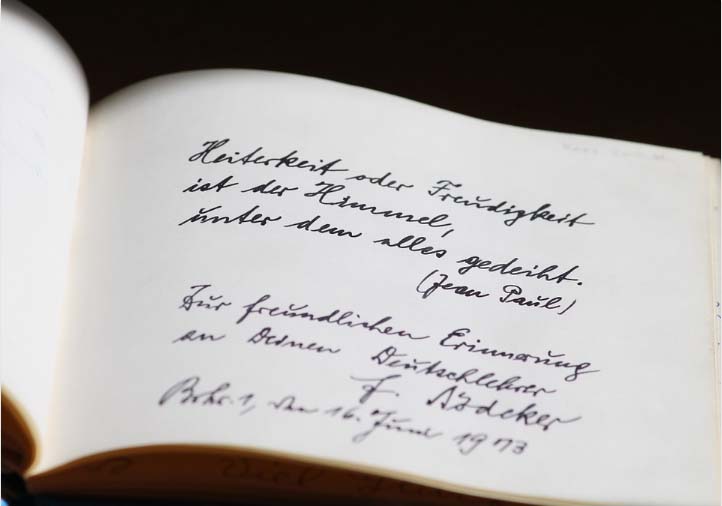 Heiterkeit oder Freudigkeit
ist der Himmel,
unter dem alles gedeiht.
(Jean Paul)
Zur freundlichen Erinnerung
an Deinen Deutschlehrer
den 16. Juni 1973